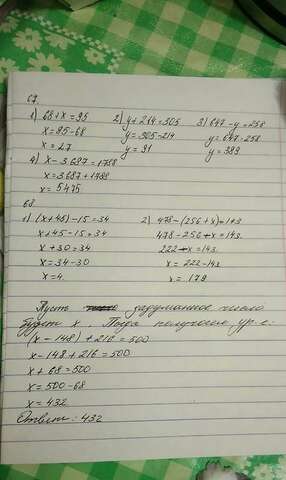 67.
1) 68+x=95 2) y+214=305 3) 647-y=258
x=95-68 y=305-214 y=647-258
x=27 y=91 y=389
4) x-3687=1788
x=3687+1788
x=5475
68.
1) (x+45)-15=34 2) 478-(256+x)=143
x+45-15=34 478-256-x=143.
x+30=34 222-x=143.
x=34-30 x=222-143
x=4. x=179
Пусть задуманное число
будет x. Тогда получили, ур-е:
(x-148)+216=500
x-148+216=500
x+68=500
x=500-68
x=432
Ответ: 432